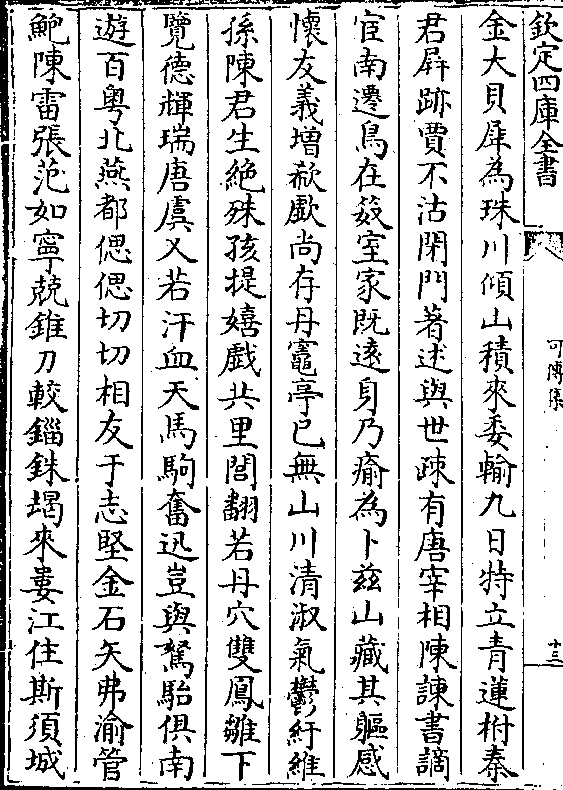 欽定四庫全書
可傳集
十三
金大貝犀為珠川傾山積來委輸九日特立青蓮柎秦
君屏跡賈不沽閉門著述與世疎有唐宰相陳諫書謫
宦南遷鳥在笯室家既遠身乃瘉為卜兹山藏其軀感
懷友義増欷歔尚存丹竈亭已無山川清淑氣鬱紆維
孫陳君生絶殊孩提嬉戲共里閭翻若丹穴雙鳳雛下
覽德輝瑞唐虞又若汗血天馬駒奮迅豈與駑駘俱南
遊百粤北燕都偲偲切切相友于志堅金石矢弗渝管
鮑陳雷張范如寧兢錐刀較錙銖朅來婁江住斯須城